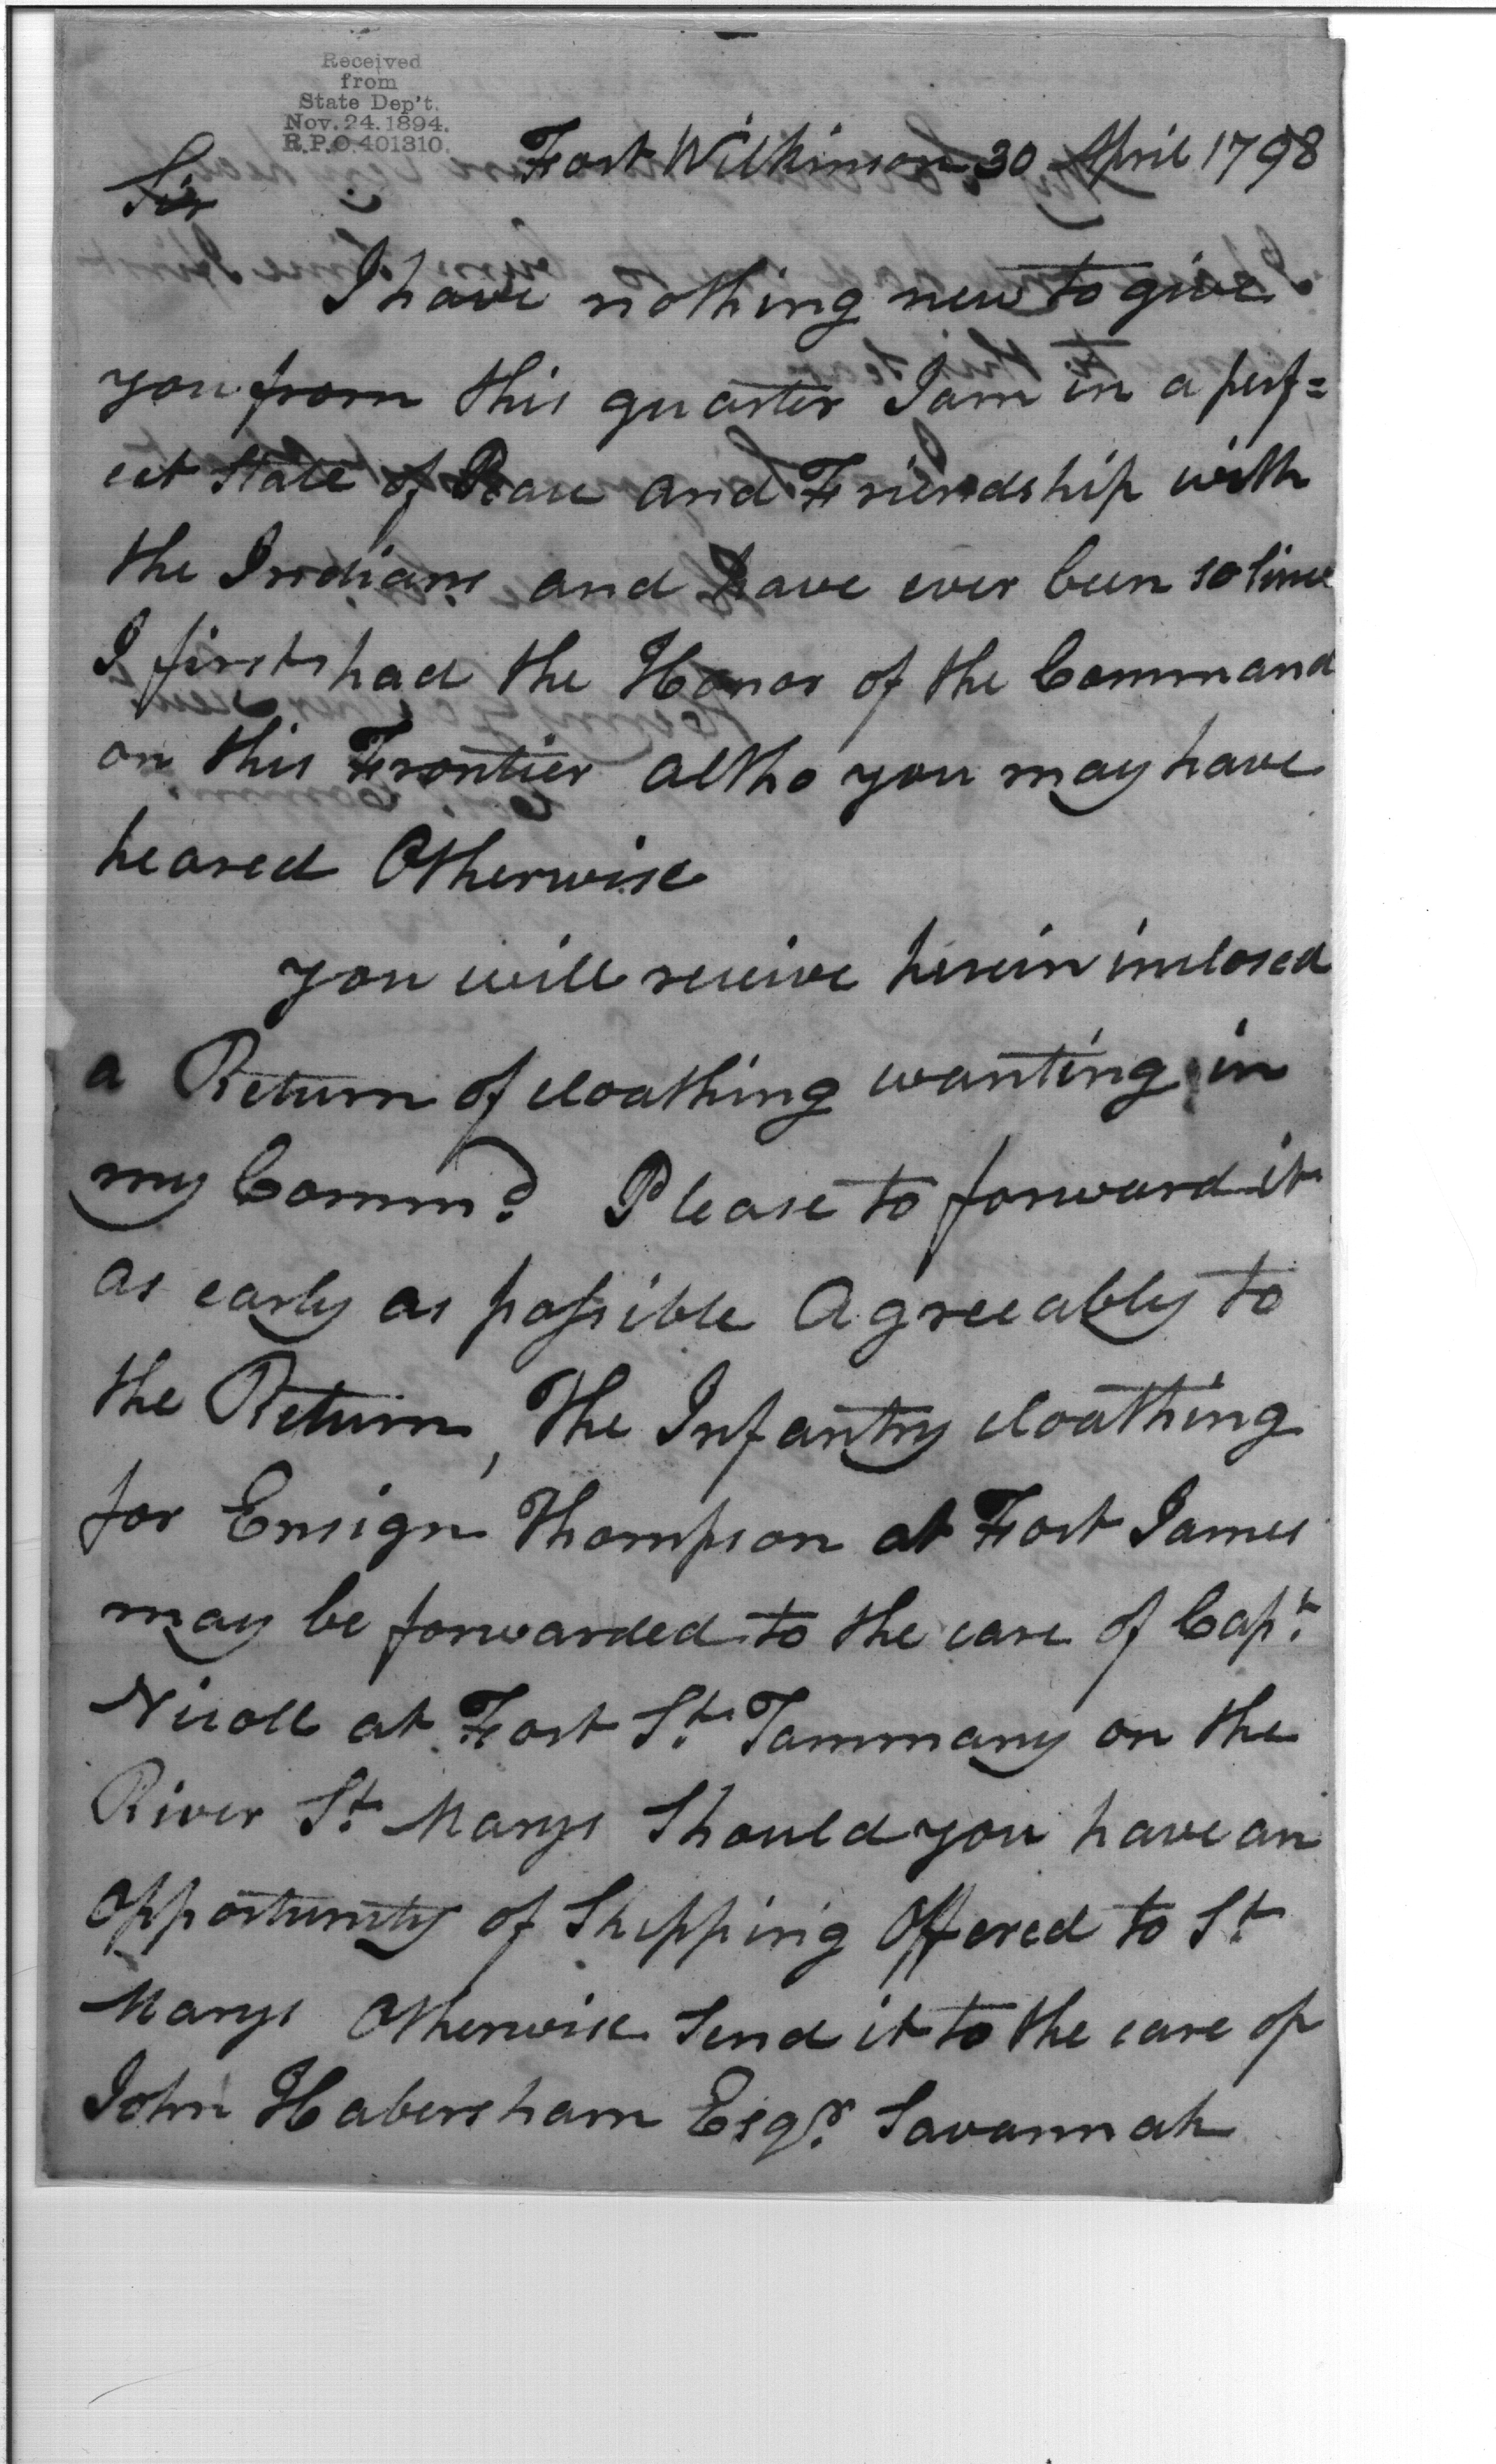 Received
from
State Dep't.
Nov. 24. 1894.
R.P.O. 401310.
Fort Wilkinson 30 April 1798
Sir
I have nothing new to give
you from this quarter I am in a perf=
ect State of Peace and Friendship with
the Indians and have ever been so since
I first had the Honor of the Command
on this Frontier altho you may have
heared Otherwise
you will receive herein inclosed
a Return of cloathing wanting in
my Comm.d Please to forward it
as early as possible Agreeably to
the Return, The Infantry cloathing
for Ensign Thompson at Fort James
may be forwarded to the care of Capt.
Nicoll at Fort St. Tammany on the
River St. Marys Should you have an
Opportunity of Shipping Offered to St.
Marys Otherwise Send it to the care of
John Habersham Esqr. Savannah